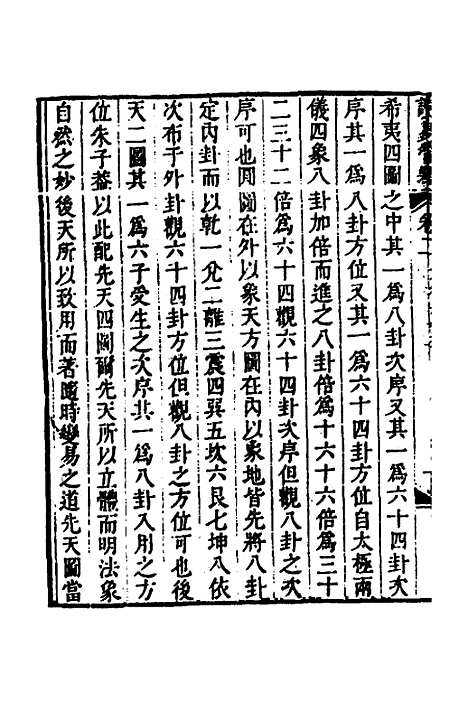 希夷四圖之中其一為八卦次序又其一為六十四卦次
序其一為八卦方位又其一為六十四卦方位自太極兩
儀四象八卦加倍而進之八卦倍為十六十六倍為三十
二三十二倍為六十四觀六十四卦次序但觀八卦之次
序可也圓圖在外以象天方圖在內以象地皆先將八卦
定內卦而以乾一兊二離三震四巽五坎六艮七坤八依
次布于外卦觀六十四卦方位但觀八卦之方位可也後
天二圖其一為六子受生之次序其一為八卦入用之方
位朱子葢以此配先天四圖爾先天所以立體而明法象
自然之妙後天所以致用而著隨時變易之道先天圖當